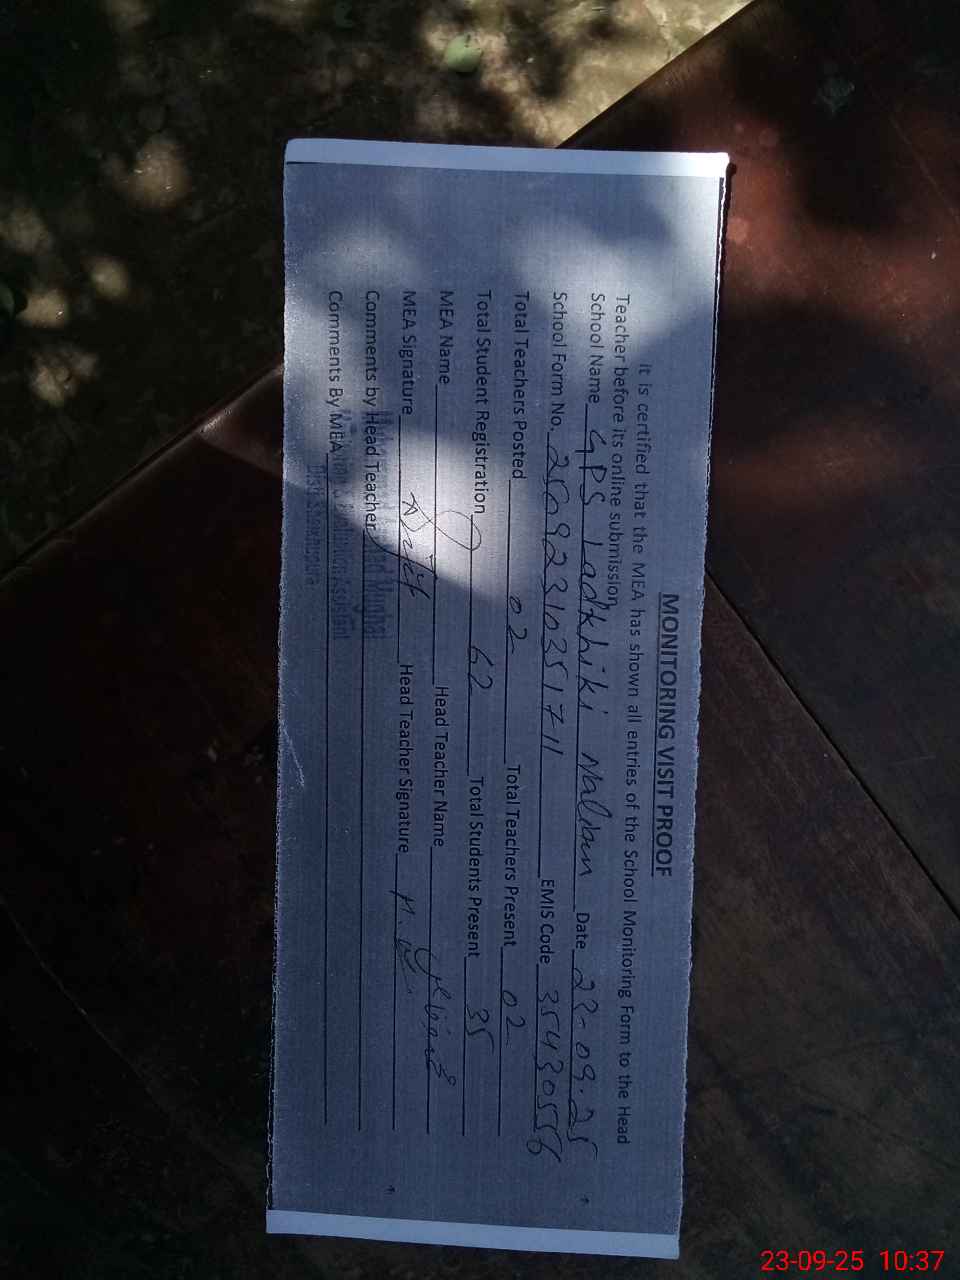 MONITORING VISIT PROOF
It is certified that the MEA has shown all entries of the School Monitoring Form to the Head
Teacher before its online submission.
School Name GPS Ladkhiki Nalian Date 23-09-25
School Form No. EMIS Code 35430556
Total Teachers Posted 02 Total Teachers Present 02
Total Student Registration 62 Total Students Present 35
MEA Name Head Teacher Name
MEA Signature Head Teacher Signature
Comments by Head Teacher
Comments By MEA
Distt. Sheikhupura
23-09-25 10:37